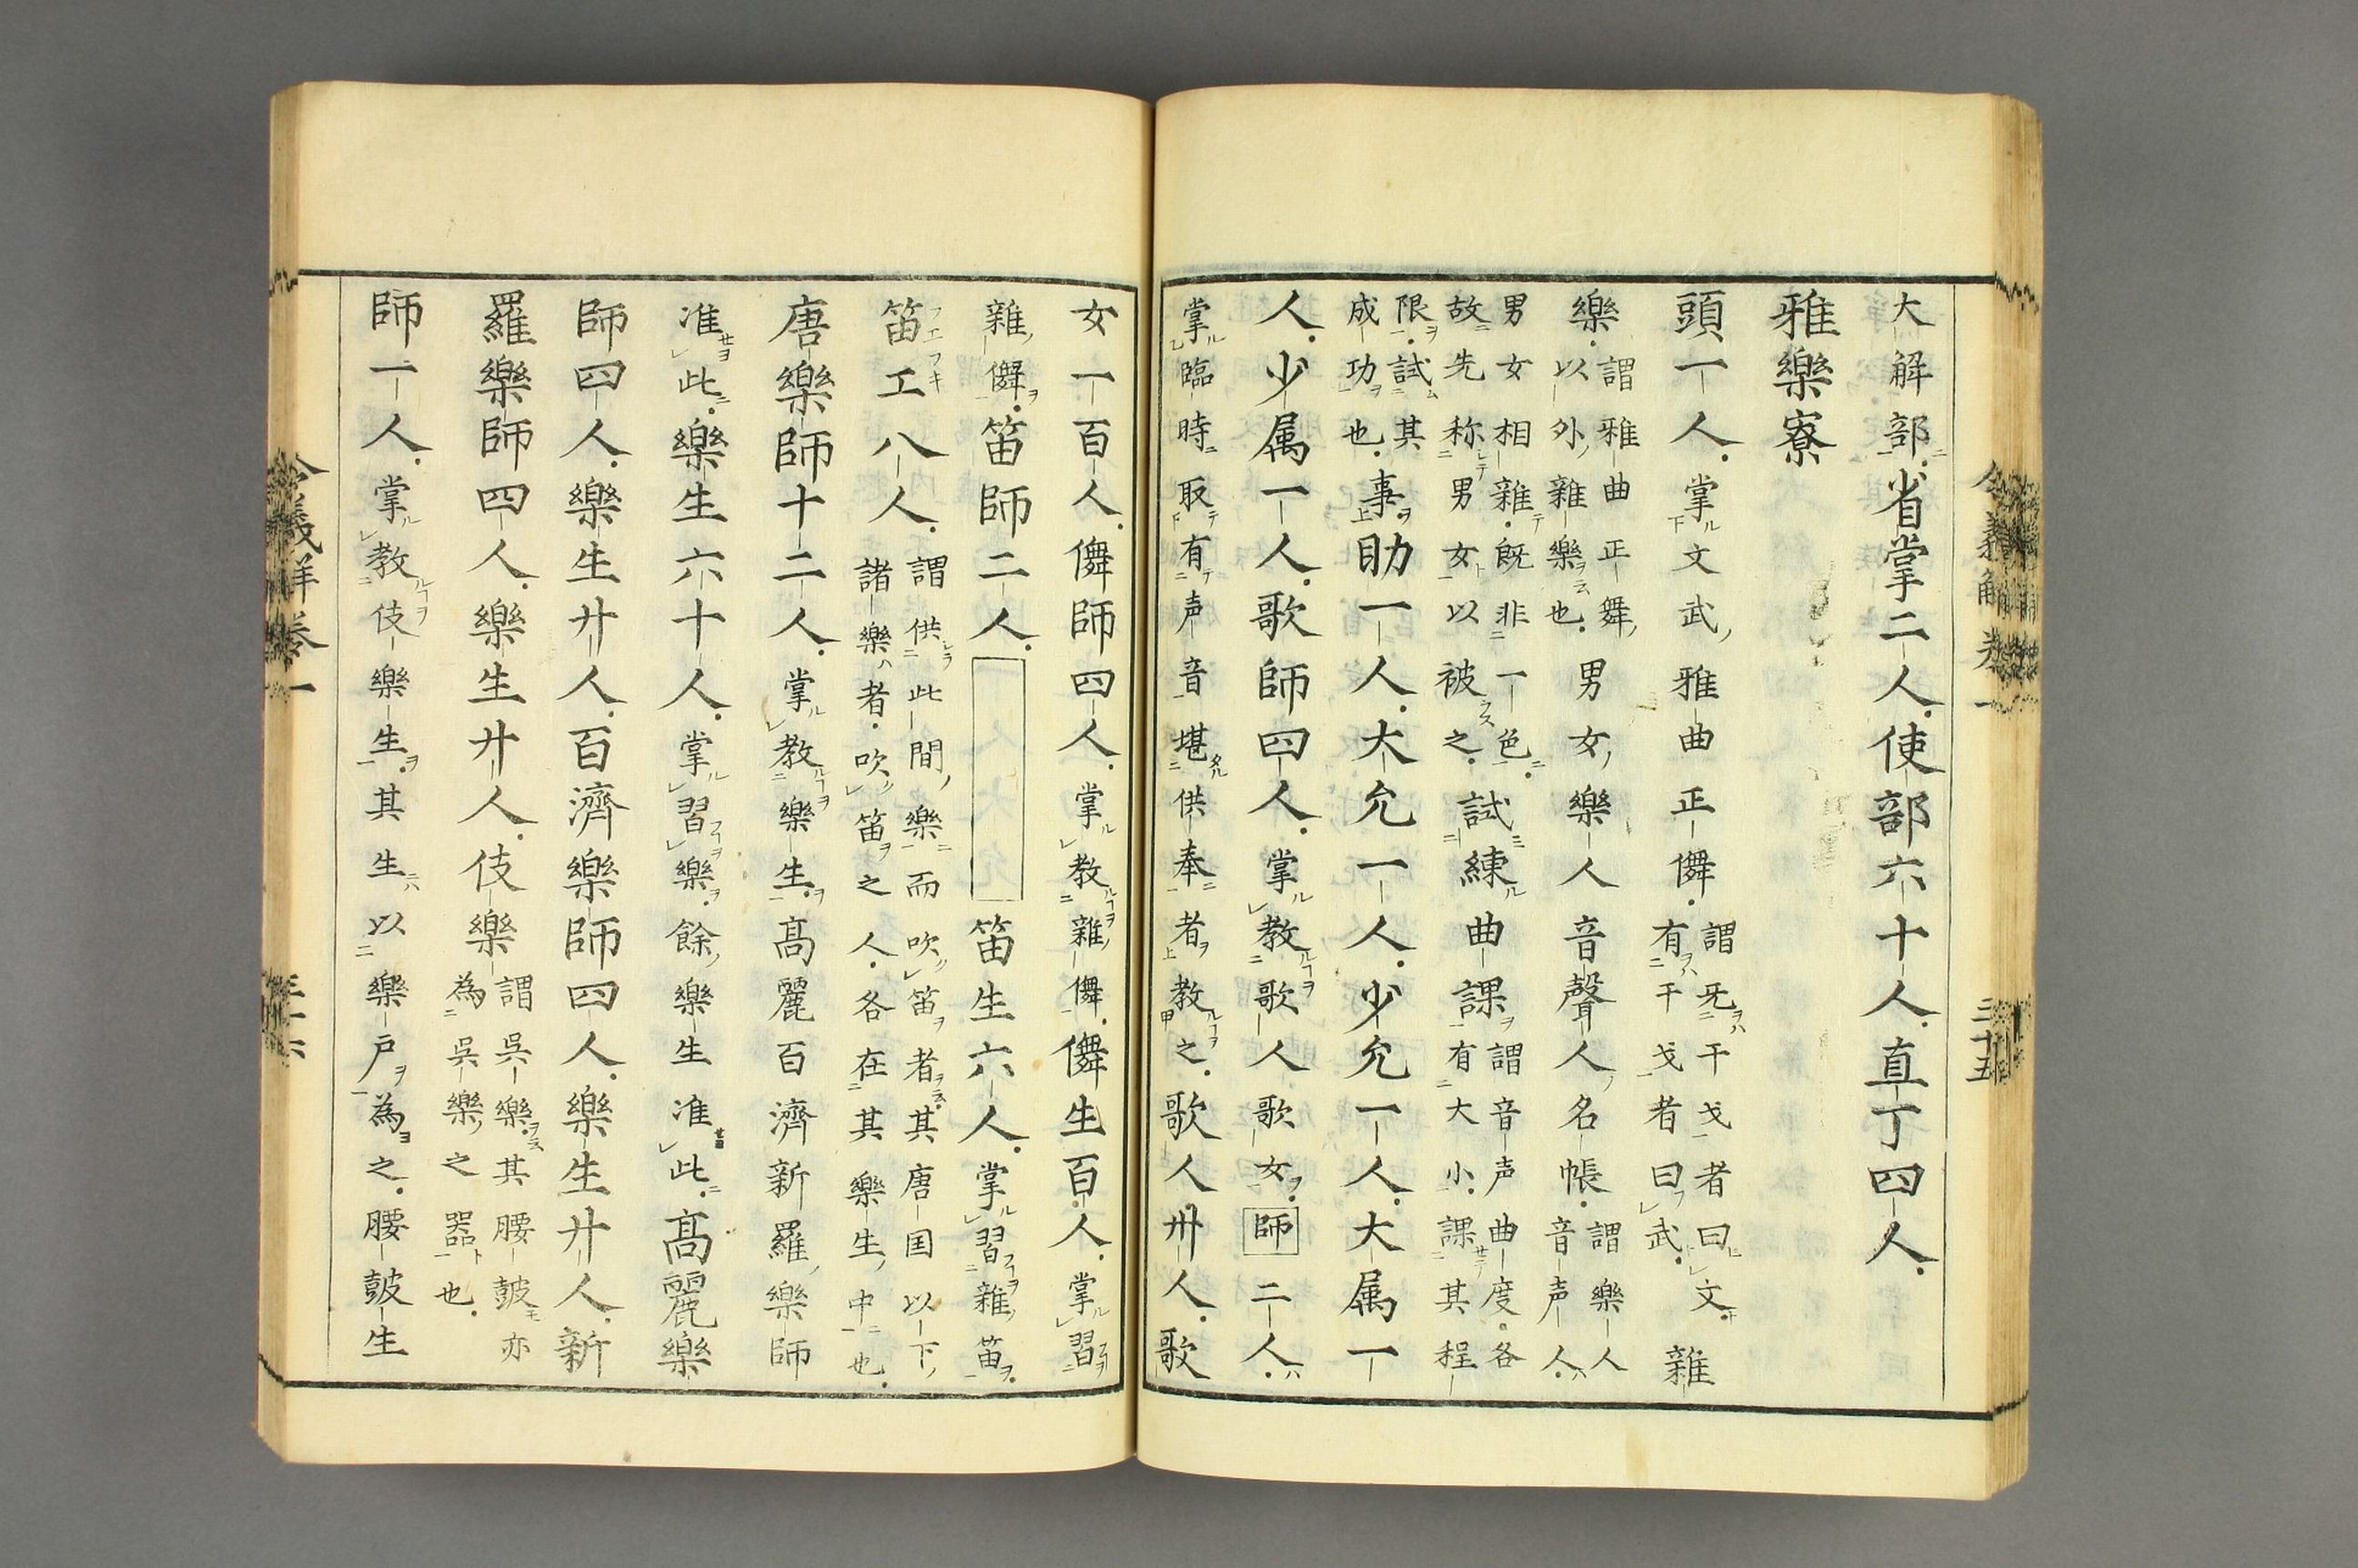 大解部省掌二人使部六十人直丁四人
雅樂寮
頭一人掌文武雅曲正儛謂旡干戈者曰文
有干戈者曰武雜
樂謂雅曲正舞
以外雜樂也男女樂人音聲人名帳謂樂人
音声人
男女相雜既非一色
故先称男女以被之試練曲課謂音声曲度各
有大小課其程
限試其
成功也事助一人大允一人少允一人大属一
人少属一人歌師四人掌教歌人歌女師二人
掌臨時取有声音堪供奉者教之歌人卅人歌
女一百人儛師四人掌教雜儛儛生百人掌習
雜儛笛師二人笛生六人掌習雜笛
笛工八人謂供此間樂而吹笛者其唐国以下
諸樂者吹笛之人各在其樂生中也
唐樂師十二人掌教樂生高麗百濟新羅樂師
准此樂生六十人掌習樂餘樂生准此高麗樂
師四人樂生廾人百濟樂師四人樂生廾人新
羅樂師四人樂生廾人伎樂謂吳樂其腰皷亦
為吳樂之器也
師一人掌教伎樂生其生以樂戸為之腰皷生
令義解卷一
三十五
三十六